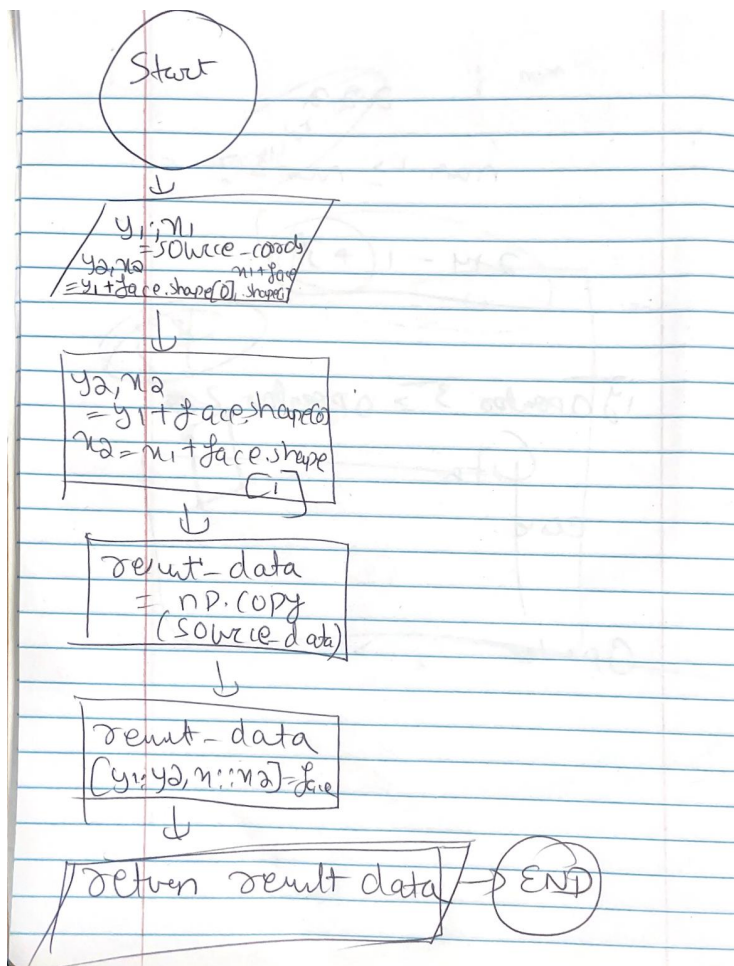 Start
y1, x1
= source_coords
y2, x2 x1 + face
= y1 + face.shape[0], .shape[1]
y2, x2
= y1 + face.shape[0]
x2 = x1 + face.shape
[1]
result_data
= np.copy
(source_data)
result_data
[y1:y2, x1:x2] = face
return result data
END